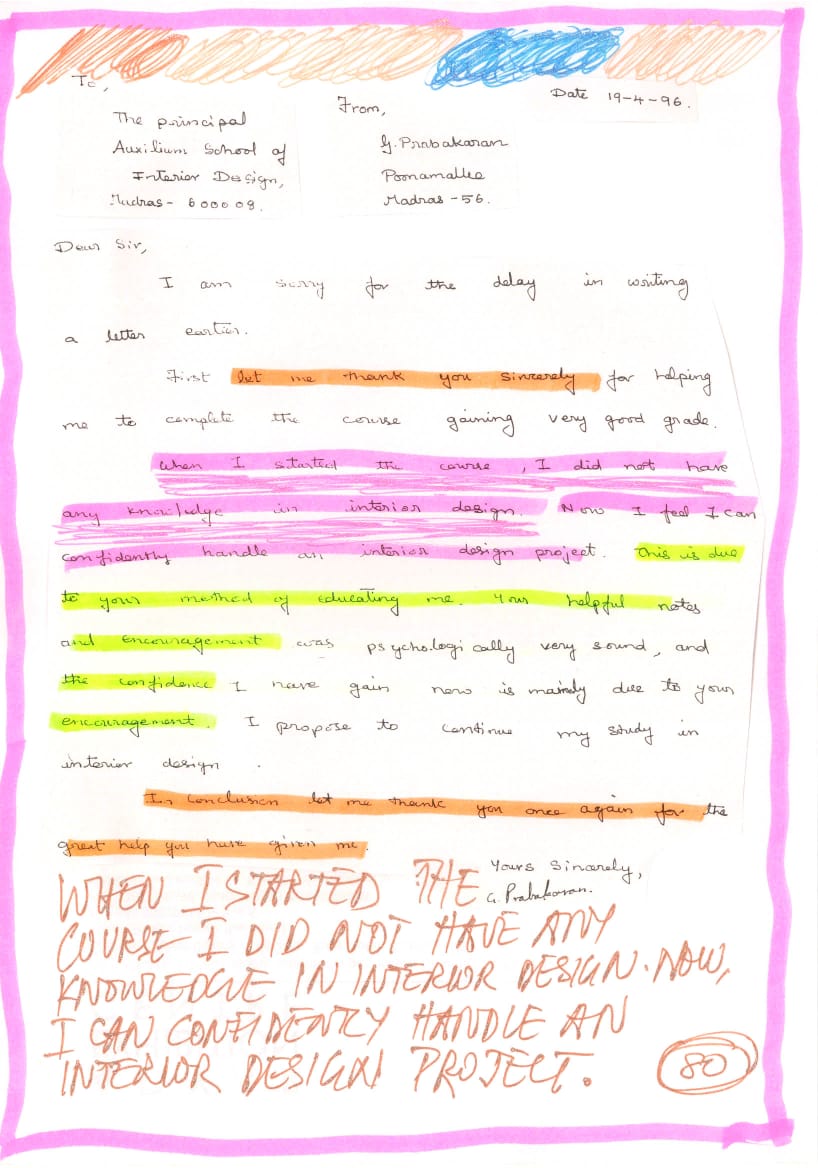 To,
The principal
Auxilium School of
Interior Design,
Madras - 600008.
From,
G. Prabakaran
Poonamallee
Madras - 56.
Date 19-4-96.
Dear Sir,
I am sorry for the delay in writing
a letter earlier.
First let me thank you sincerely for helping
me to complete the course gaining very good grade.
When I started the course, I did not have
any knowledge in interior design. Now I feel I can
confidently handle an interior design project. This is due
to your method of educating me. Your helpful notes
and encouragement was psychologically very sound, and
the confidence I have gain now is mainly due to your
encouragement. I propose to continue my study in
interior design.
In conclusion let me thank you once again for the
great help you have given me.
Yours Sincerely,
G. Prabakaran.
WHEN I STARTED THE
COURSE I DID NOT HAVE ANY
KNOWLEDGE IN INTERIOR DESIGN. NOW,
I CAN CONFIDENTLY HANDLE AN
INTERIOR DESIGN PROJECT.
80